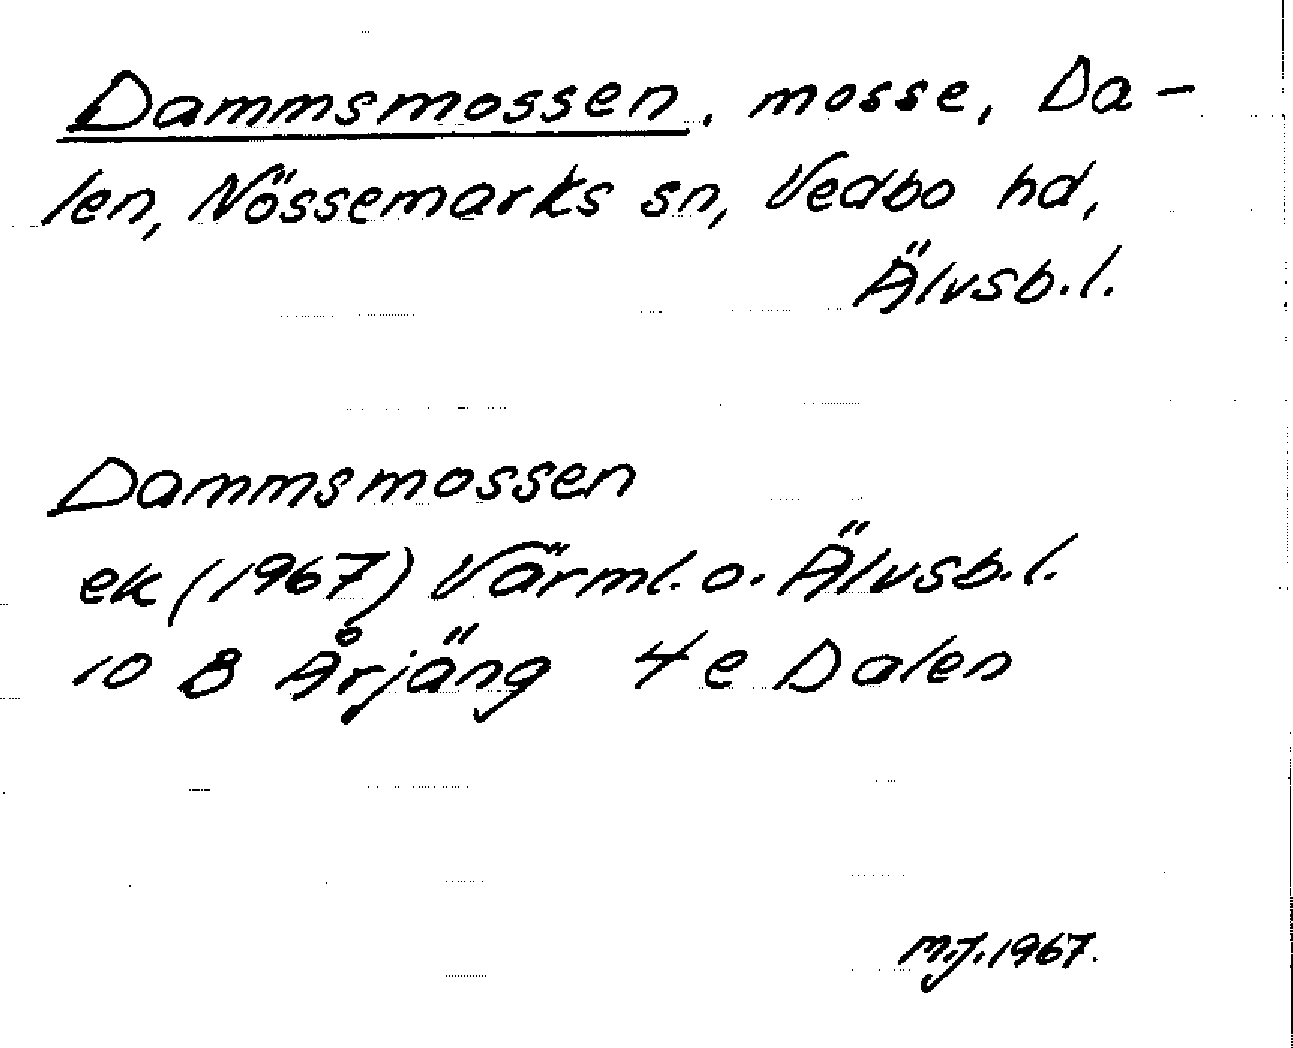 Dammsmossen, mosse, Da-
len, Nössemarks sn, Vedbo hd,
Älvsb.l.
Dammsmossen
ek (1967) Värml. o. Älvsb.l.
10 B Årjäng 4e Dalen
M.J. 1967.